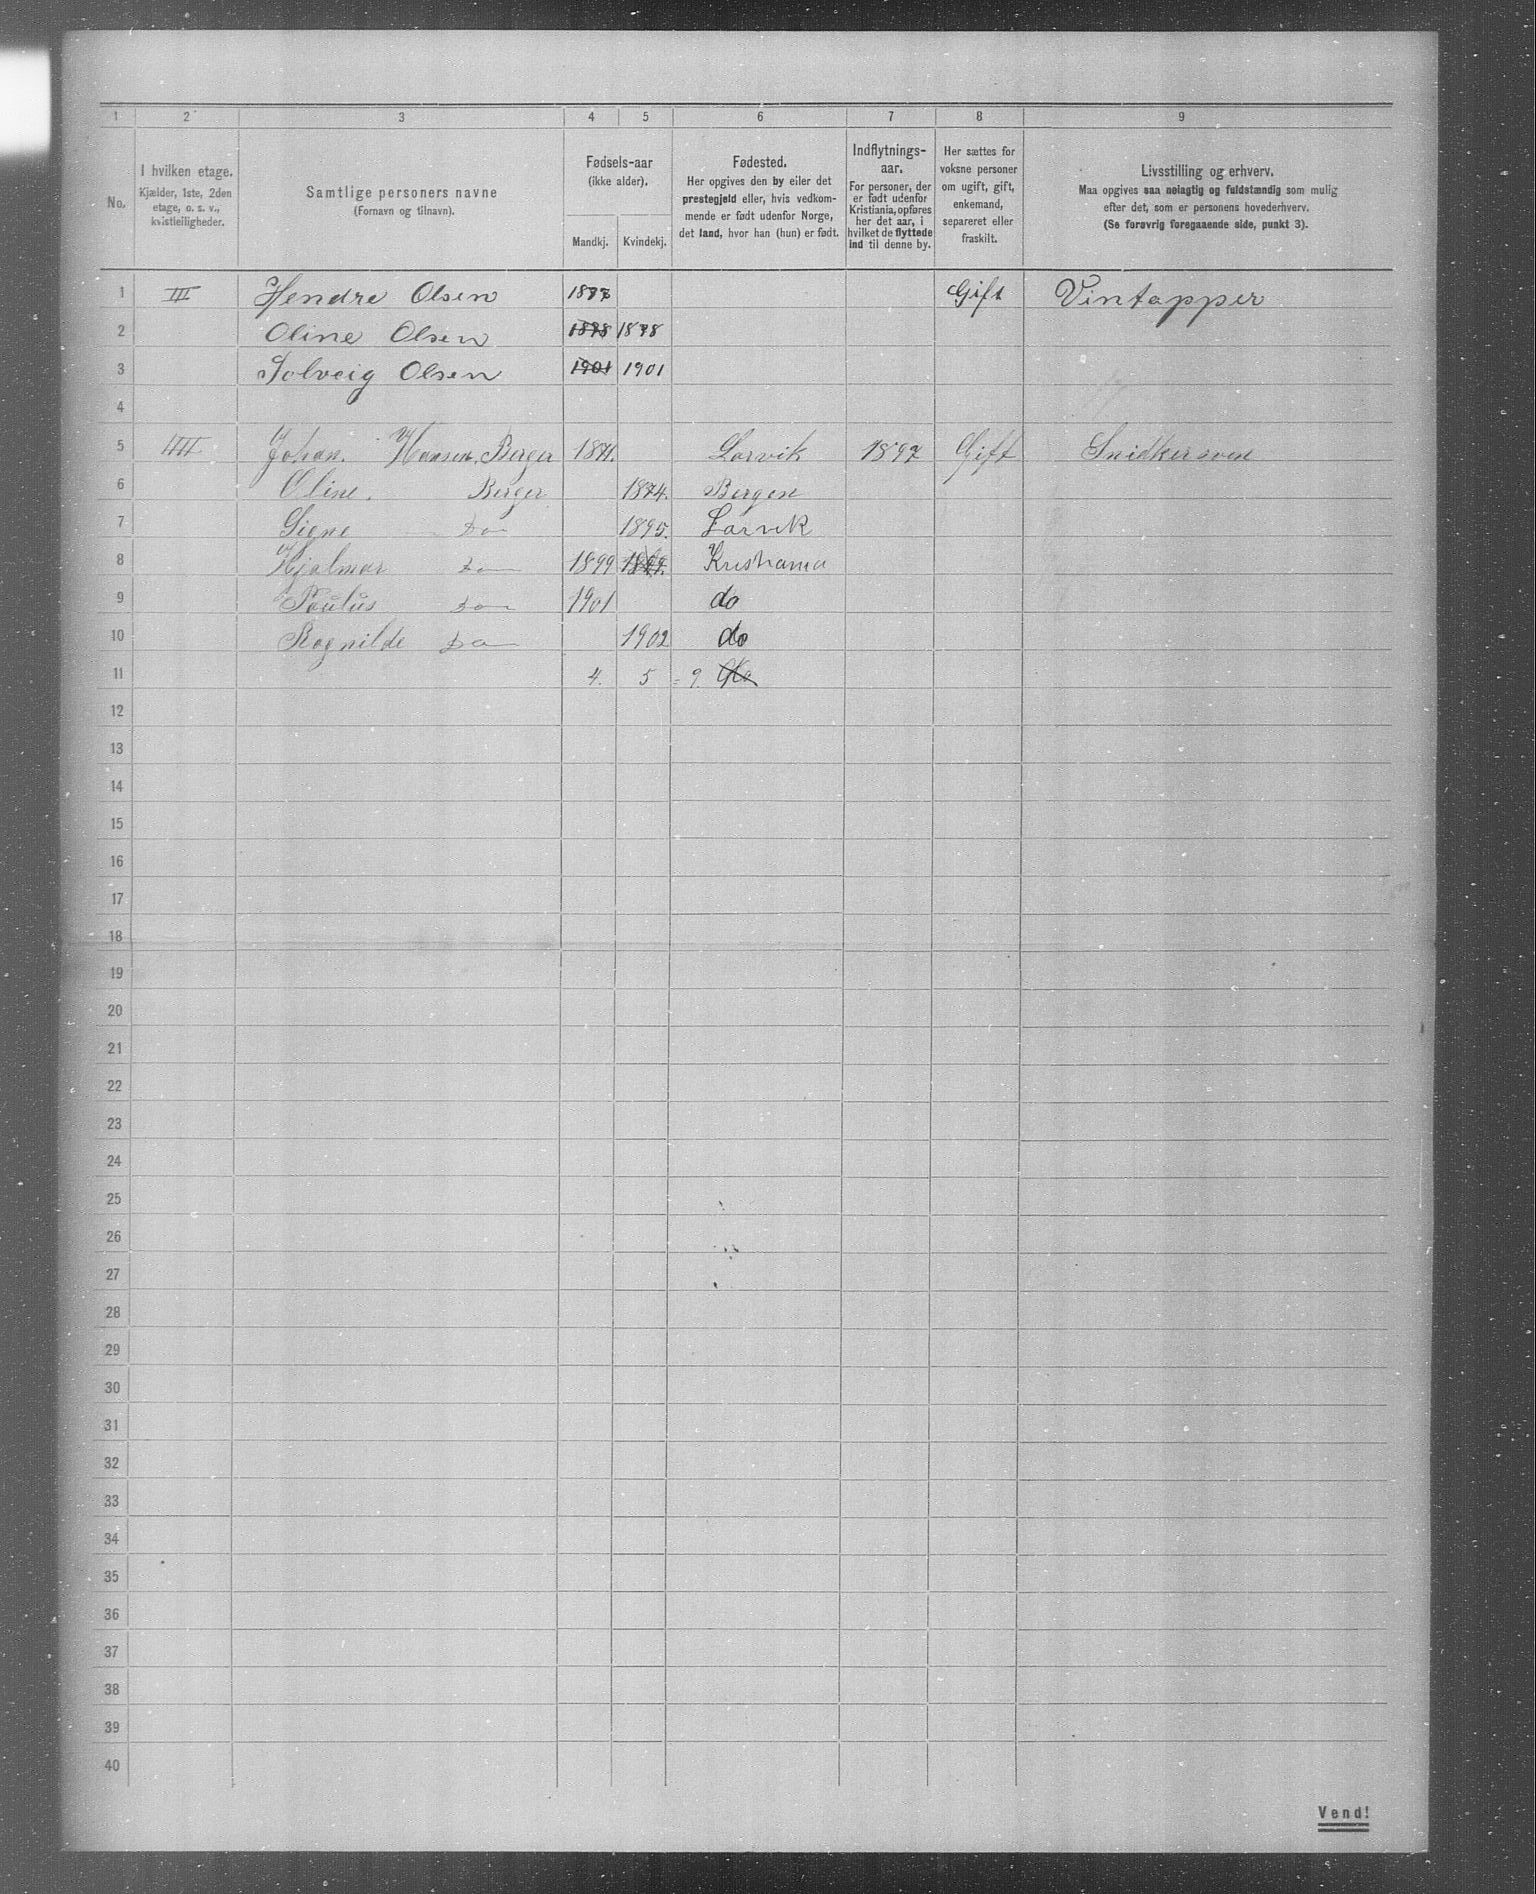 1 2 3 4 5 6 7 8 9
No.
I hvilken etage.
Kjælder, 1ste, 2den
etage, o. s. v.,
kvistleiligheder.
Samtlige personers navne
(Fornavn og tilnavn).
Fødsels-aar
(ikke alder).
Mandkj. Kvindekj.
Fødested.
Her opgives den by eller det
prestegjeld eller, hvis vedkom-
mende er født udenfor Norge,
det land, hvor han (hun) er født.
Indflytnings-
aar.
For personer, der
er født udenfor
Kristiania, opføres
her det aar, i
hvilket de flyttede
ind til denne by.
Her sættes for
voksne personer
om ugift, gift,
enkemand,
separeret eller
fraskilt.
Livsstilling og erhverv.
Maa opgives saa nøiagtig og fuldstændig som mulig
efter det, som er personens hovederhverv.
(Se forøvrig foregaaende side, punkt 3).
1 III Hendre Olsen 1877 Gift Vintapper
2 Oline Olsen 1878 1878
3 Solveig Olsen 1901 1901
4
5 IIII Johan. Hansen. Berger 1871. Larvik 1897 Gift Snidkersven
6 Oline. Berger 1874. Bergen
7 Signe Do 1895. Larvik
8 Hjalmar Do 1899 1899. Kristiania
9 Paulus Do 1901 do
10 Ragnilde Do 1902 do
11 4. 5 = 9.
12
13
14
15
16
17
18
19
20
21
22
23
24
25
26
27
28
29
30
31
32
33
34
35
36
37
38
39
40
Vend!